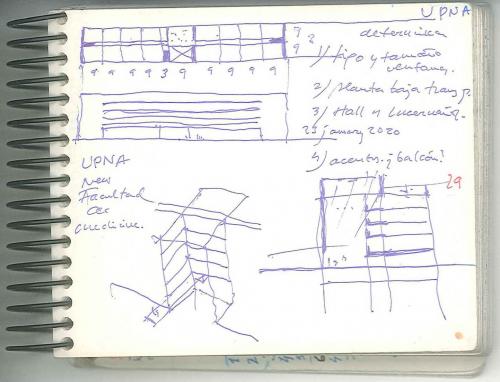 UPNA
determinar
7
2
9
1) tipo y tamaño
ventana.
9 9 9 9 3 9 9 9 9 9
2) planta baja
3) Hall y
23 january 2020
4) ¿balcón?
UPNA
New
Facultad
de
medicine.
29